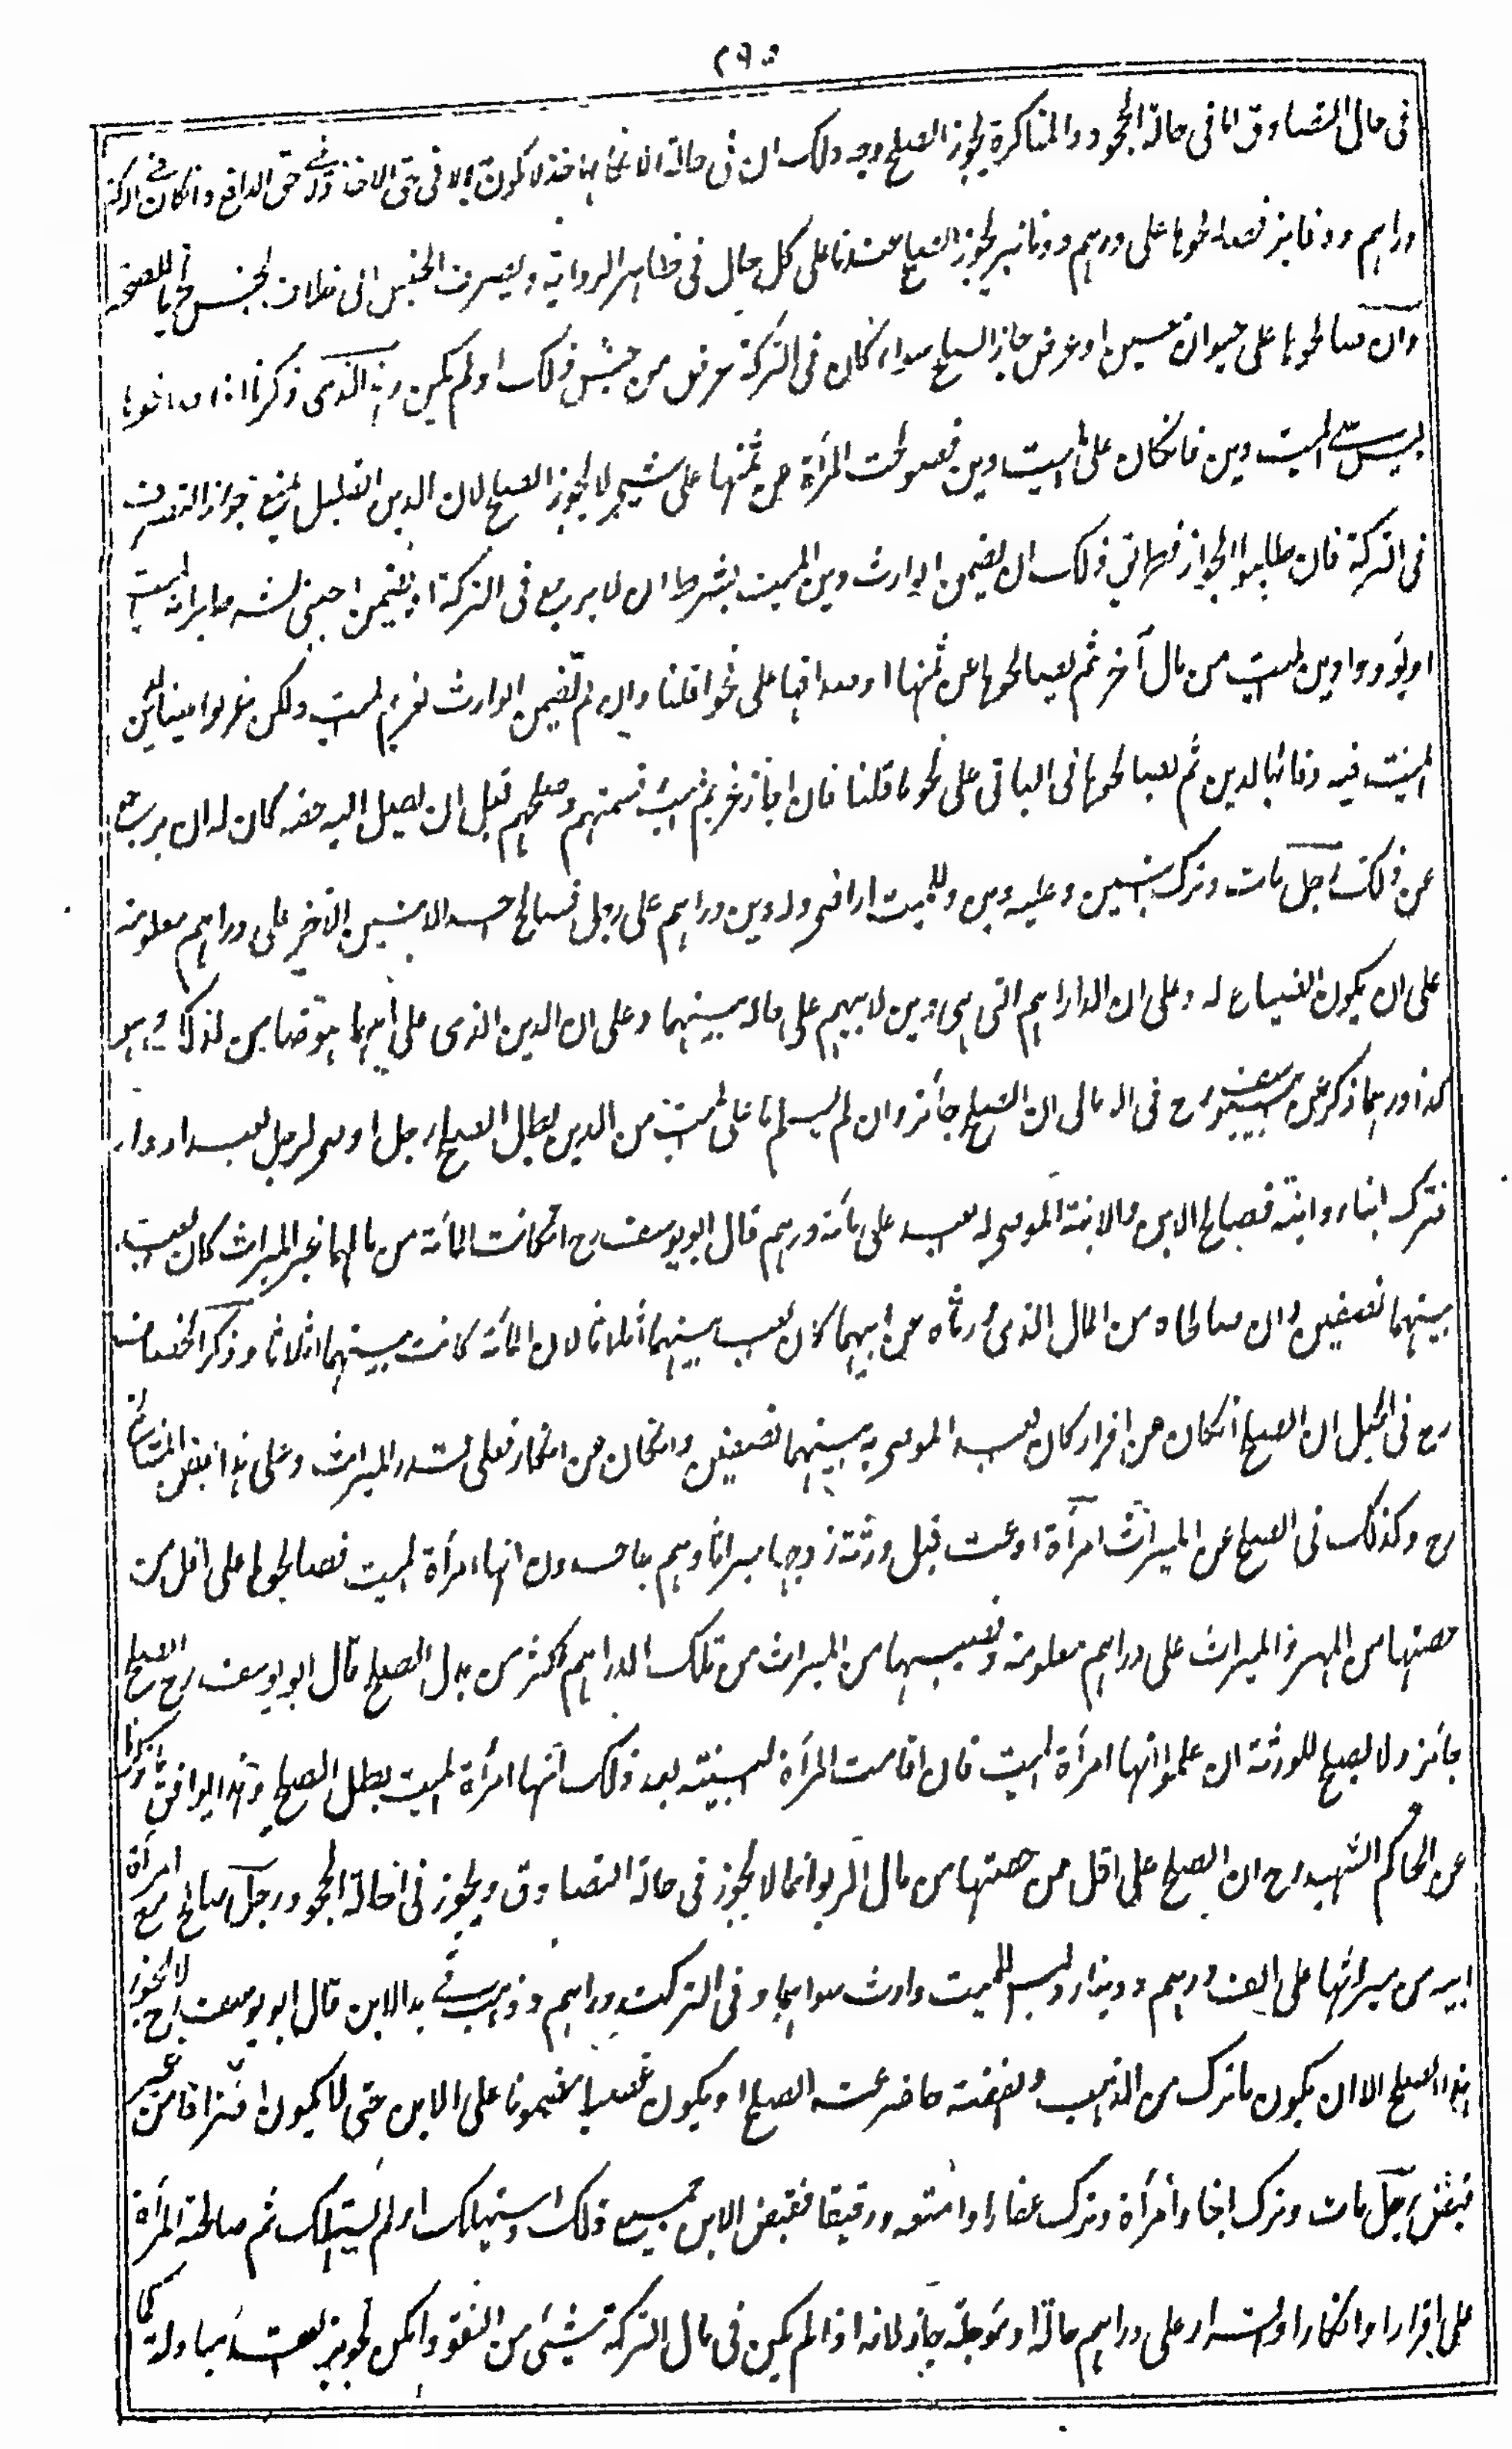 ٢٩٠
في حال التصادق اما في حالة الجحود والمناكرة يجوز الصلح وجه ذلك ان في حالة الانكار ما اخذ لا يكون بدلا في حق الاخذ ولا في حق الدافع وانكان في التركة
دراهم ودنانير فصالحوها على دراهم ودنانير يجوز الصلح عندنا على كل حال في ظاهر الرواية ويصرف الجنس الى خلاف الجنس تحريا للصحة
وان صالحوها على حيوان معين او عرض جاز الصلح سواء كان في التركة عرض من جنس ذلك او لم يكن وهذا الذي ذكرنا اذا
ليس على الميت دين فانكان على الميت دين فصولحت المرأة عن ثمنها على شيئ لا يجوز الصلح لان الدين القليل يمنع جواز التصرف
في التركة فان طلبوا الجواز فطريق ذلك ان يضمن الوارث دين الميت بشرط ان لا يرجع في التركة او يضمن اجنبي بشرط براءة الميت
او يؤدوا دين الميت من مال آخر ثم يصالحوها عن ثمنها او صداقها على نحو ما قلنا وان لم يضمن الوارث لغريم الميت ولكن عزلوا عينا لدين
الميت فيه وفاء بالدين ثم يصالحوها في الباقي على نحو ما قلنا فان اجاز غريم الميت قسمتهم وصلحهم قبل ان يصل اليه حقه كان له ان يرجع
عن ذلك رجل مات وترك ابنين وعليه دين وللميت اراضي وله دين دراهم على رجل فصالح احد الابنين الآخر على دراهم معلومة
على ان يكون الضياع له وعلى ان الدراهم التي هي دين لابيهم على حاله بينهما وعلى ان الدين الذي على ابيهما هو ضامن لذلك وهو
كذا درهما ذكر عن ابي يوسف رح في الامالي ان الصلح جائز وان لم يسلم ما على الميت من الدين بطل الصلح رجل اوصى لرجل بعبد او دار
فترك ابنا وابنة فصالح الابن والابنة الموصى له بعبد على مائة درهم قال ابو يوسف رح انكانت المائة من مالهما غير الميراث كان العبد
بينهما نصفين وان صالحاه من المال الذي ورثاه عن ابيهما كان العبد بينهما اثلاثا لان المائة كانت بينهما اثلاثا وذكر الخصاف
رح في الحيل ان الصلح انكان عن اقرار كان العبد الموصى به بينهما نصفين وانكان عن انكار فعلى قدر الميراث وعلى هذا بعض المشائخ
رح وكذلك في الصلح عن الميراث امرأة ادعت قبل ورثة زوجها ميراثا وهم جاحدون انها امرأة الميت فصالحوها على اقل من
حصتها من المهر والميراث على دراهم معلومة ونصيبها من الميراث من تلك الدراهم اكثر من بدل الصلح قال ابو يوسف رح الصلح
جائز ولا يصلح للورثة ان علموا انها امرأة الميت فان اقامت المرأة البينة بعد ذلك انها امرأة الميت بطل الصلح وهذا يوافق ما ذكرنا
عن الحاكم الشهيد رح ان الصلح على اقل من حصتها من مال الربوا انما لا يجوز في حالة التصادق ويجوز في حالة الجحود رجل صالح مع امرأة
ابيه من ميراثها على الف درهم ودينار وليس للميت وارث سواهما وفي التركة دراهم وذهب في يد الابن قال ابو يوسف رح لا يجوز
هذا الصلح الا ان يكون ما ترك من الذهب والفضة حاضر عند الصلح او يكون غصبا مضمونا على الابن حتى لا يكون افتراقا من غير
قبض رجل مات وترك ابنا وامرأة وترك عقارا وامتعة ورقيقا فقبض الابن جميع ذلك واستهلك او لم يستهلك ثم صالحه المرأة
على اقرار او انكار او اقرار على دراهم حالة او مؤجلة جاز لانه اذا لم يكن في مال التركة شيئ من النقود امكن تجويز العقد مبادلة كما